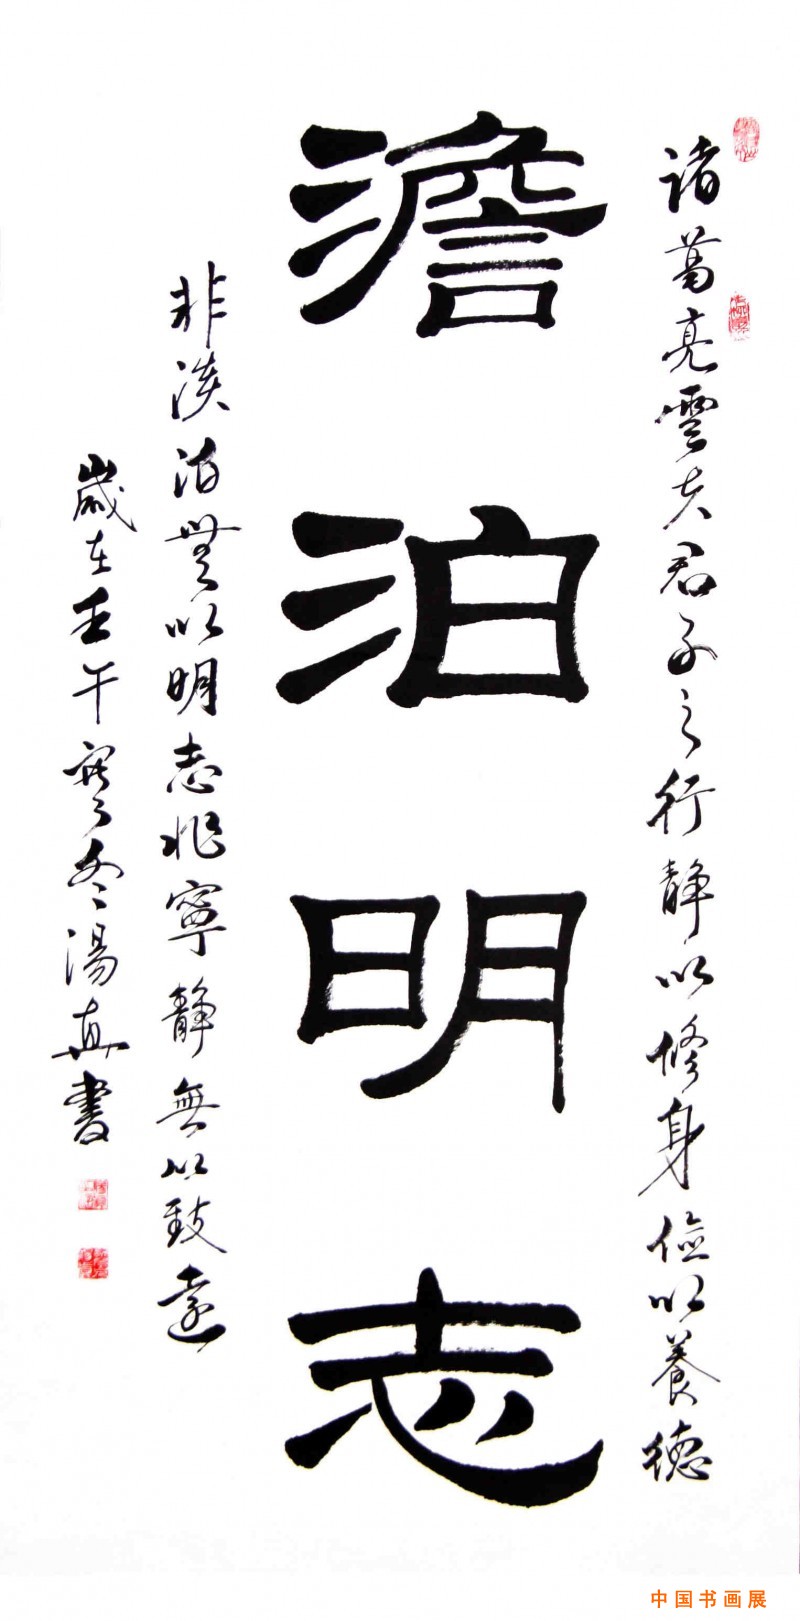 諸葛亮雲夫君子之行靜以修身儉以養德
澹泊明志
非淡泊無以明志非寧靜無以致遠
歲在壬午寒冬湯真書
中国书画展